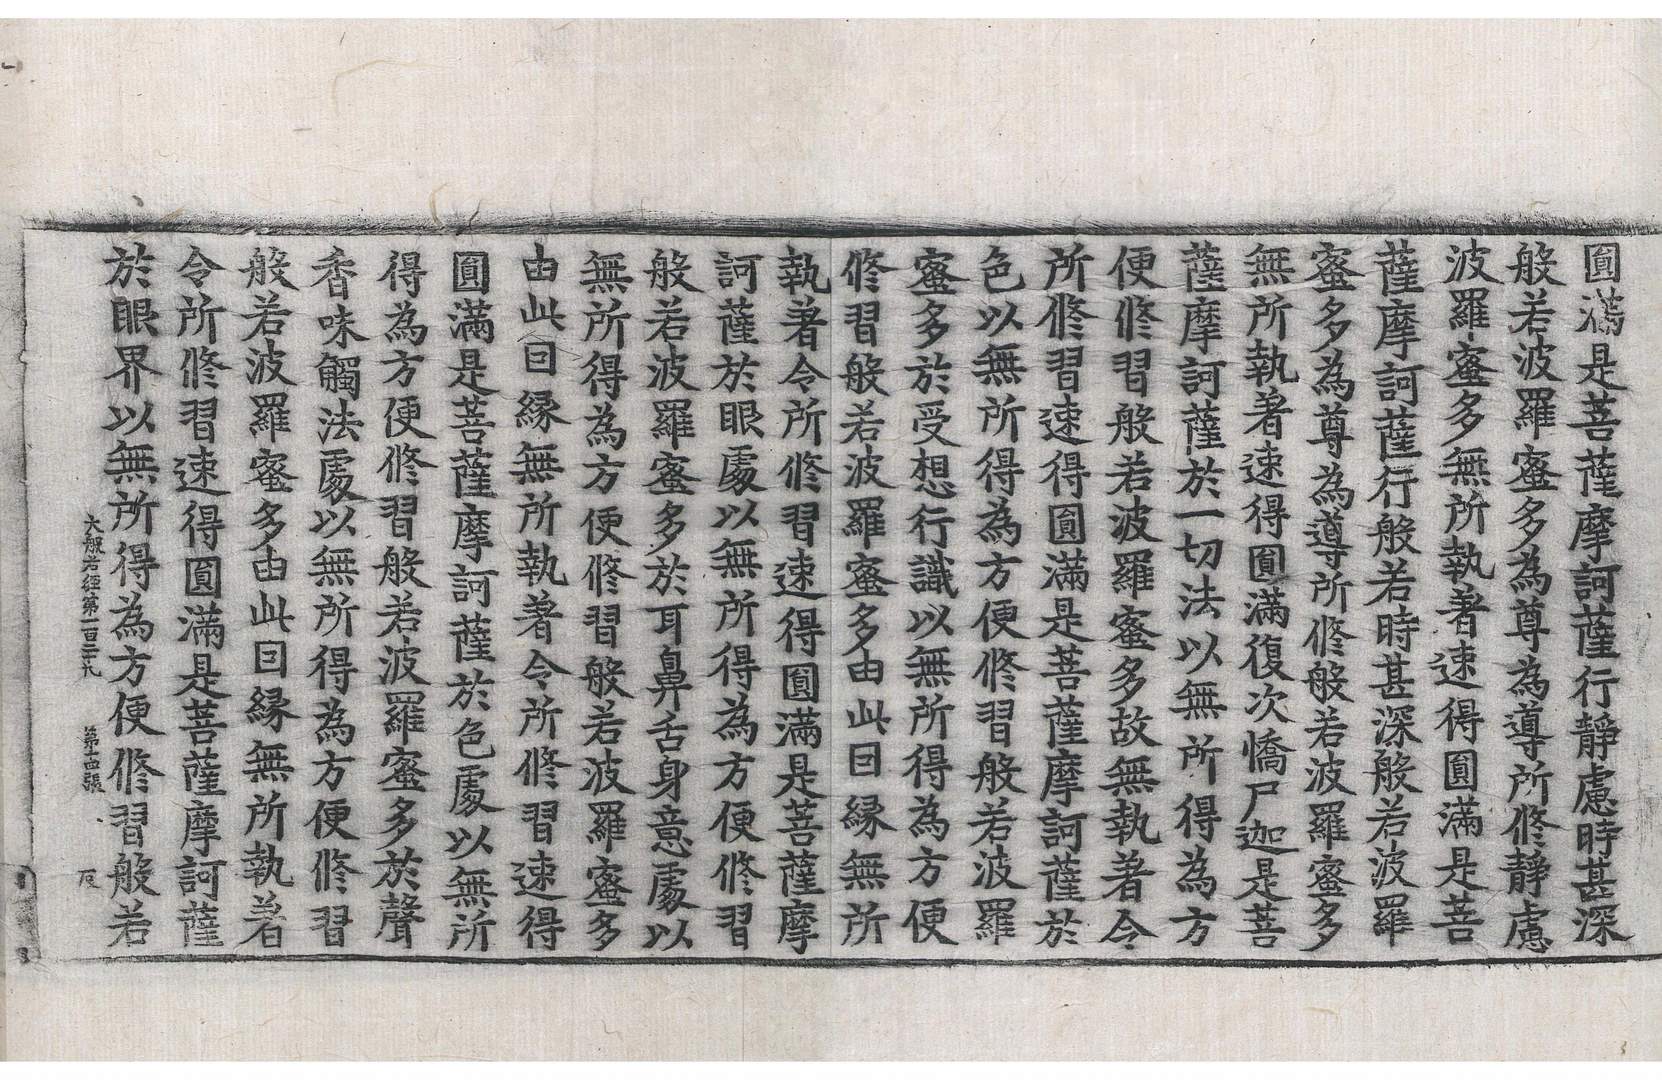 圓滿是菩薩摩訶薩行靜慮時甚深
般若波羅蜜多為尊為導所修靜慮
波羅蜜多無所執著速得圓滿是菩
薩摩訶薩行般若時甚深般若波羅
蜜多為尊為導所修般若波羅蜜多
無所執著速得圓滿復次憍尸迦是菩
薩摩訶薩於一切法以無所得為方
便修習般若波羅蜜多故無執著令
所修習速得圓滿是菩薩摩訶薩於
色以無所得為方便修習般若波羅
蜜多於受想行識以無所得為方便
修習般若波羅蜜多由此因縁無所
執著令所修習速得圓滿是菩薩摩
訶薩於眼處以無所得為方便修習
般若波羅蜜多於耳鼻舌身意處以
無所得為方便修習般若波羅蜜多
由此因縁無所執著令所修習速得
圓滿是菩薩摩訶薩於色處以無所
得為方便修習般若波羅蜜多於聲
香味觸法處以無所得為方便修習
般若波羅蜜多由此因縁無所執著
令所修習速得圓滿是菩薩摩訶薩
於眼界以無所得為方便修習般若
大般若經第一百二十九 第十四張 辰